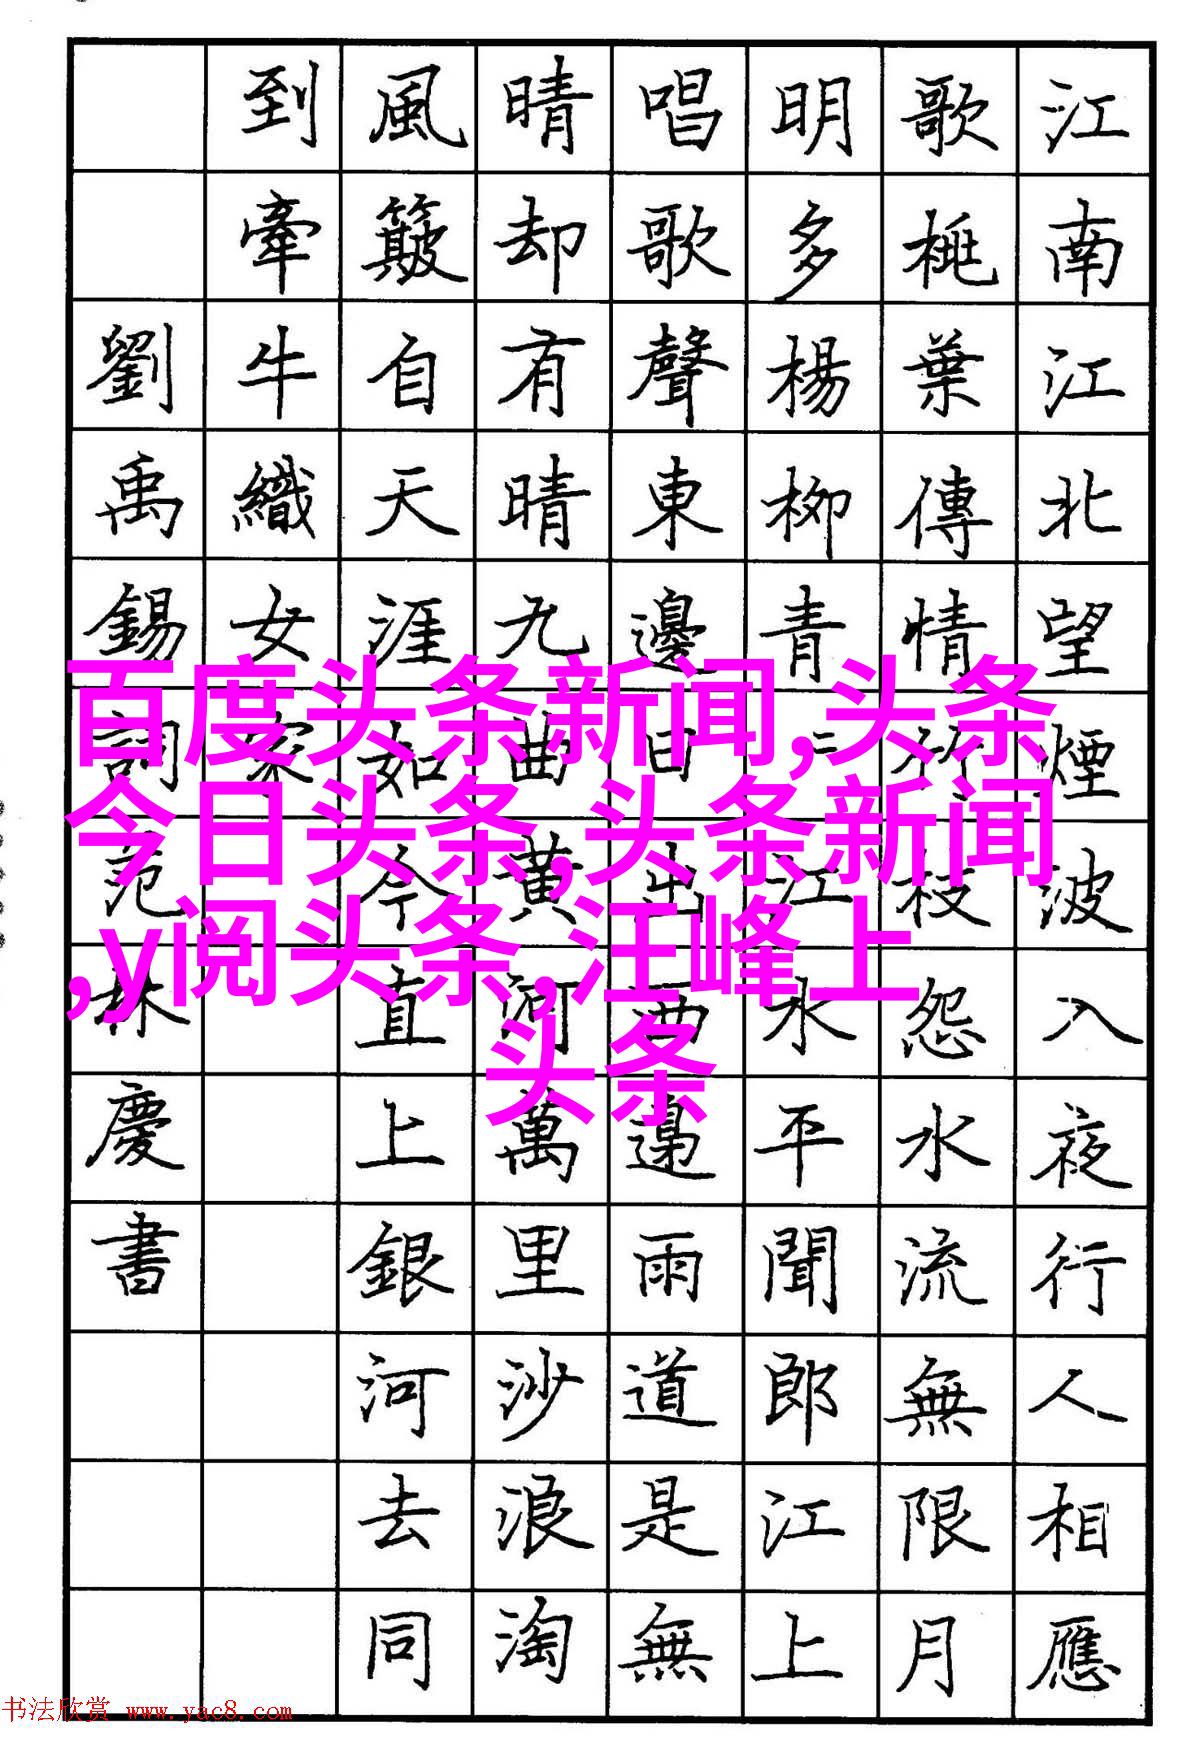 江南江北望煙波入夜行人相應
歌桃葉傳情竹枝怨水流無限月
明多楊柳青江水平聞郎江上
唱歌聲東邊日出西邊雨道是無
晴却有晴九曲黄河萬里沙浪淘
風簸自天涯如今直上銀河去同
到牽牛織女家
劉禹錫詞范林慶書
百度头条新闻,头条
今日头条,头条新闻
,y阅头条,汪峰上
头条
书法欣赏 www.yac8.com